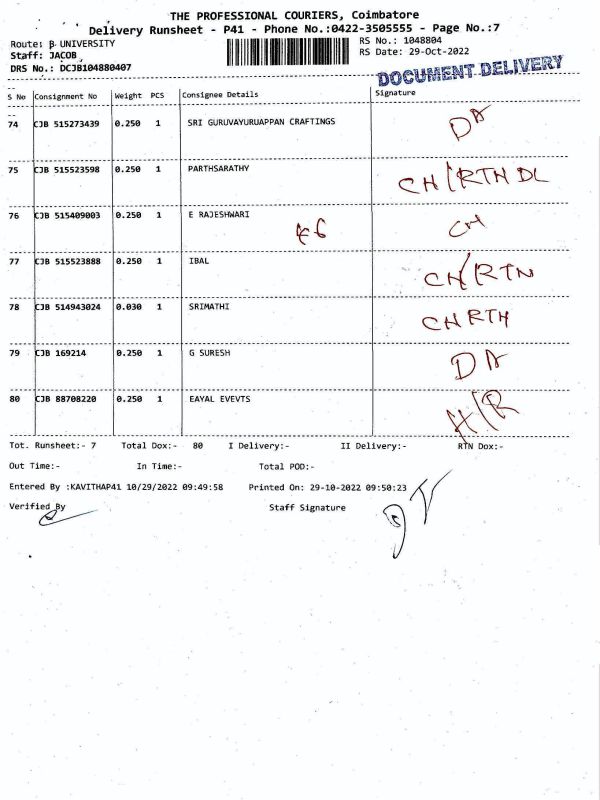 THE PROFESSIONAL COURIERS, Coimbatore
Delivery Runsheet - P41 - Phone No.:0422-3505555 - Page No.:7
Route: β UNIVERSITY RS No.: 1048804
Staff: JACOB RS Date: 29-Oct-2022
DRS No.: DCJB104880407
DOCUMENT DELIVERY
S No Consignment No Weight PCS Consignee Details Signature
74 CJB 515273439 0.250 1 SRI GURUVAYURUAPPAN CRAFTINGS DA
75 CJB 515523598 0.250 1 PARTHSARATHY CH/RTN DL
76 CJB 515409003 0.250 1 E RAJESHWARI CH
77 CJB 515523888 0.250 1 IBAL CH/RTN
78 CJB 514943024 0.030 1 SRIMATHI CH RTH
79 CJB 169214 0.250 1 G SURESH DA
80 CJB 88708220 0.250 1 EAYAL EVEVTS H/R
Tot. Runsheet:- 7 Total Dox:- 80 I Delivery:- II Delivery:- RTN Dox:-
Out Time:- In Time:- Total POD:-
Entered By :KAVITHAP41 10/29/2022 09:49:58 Printed On: 29-10-2022 09:50:23
Verified By Staff Signature